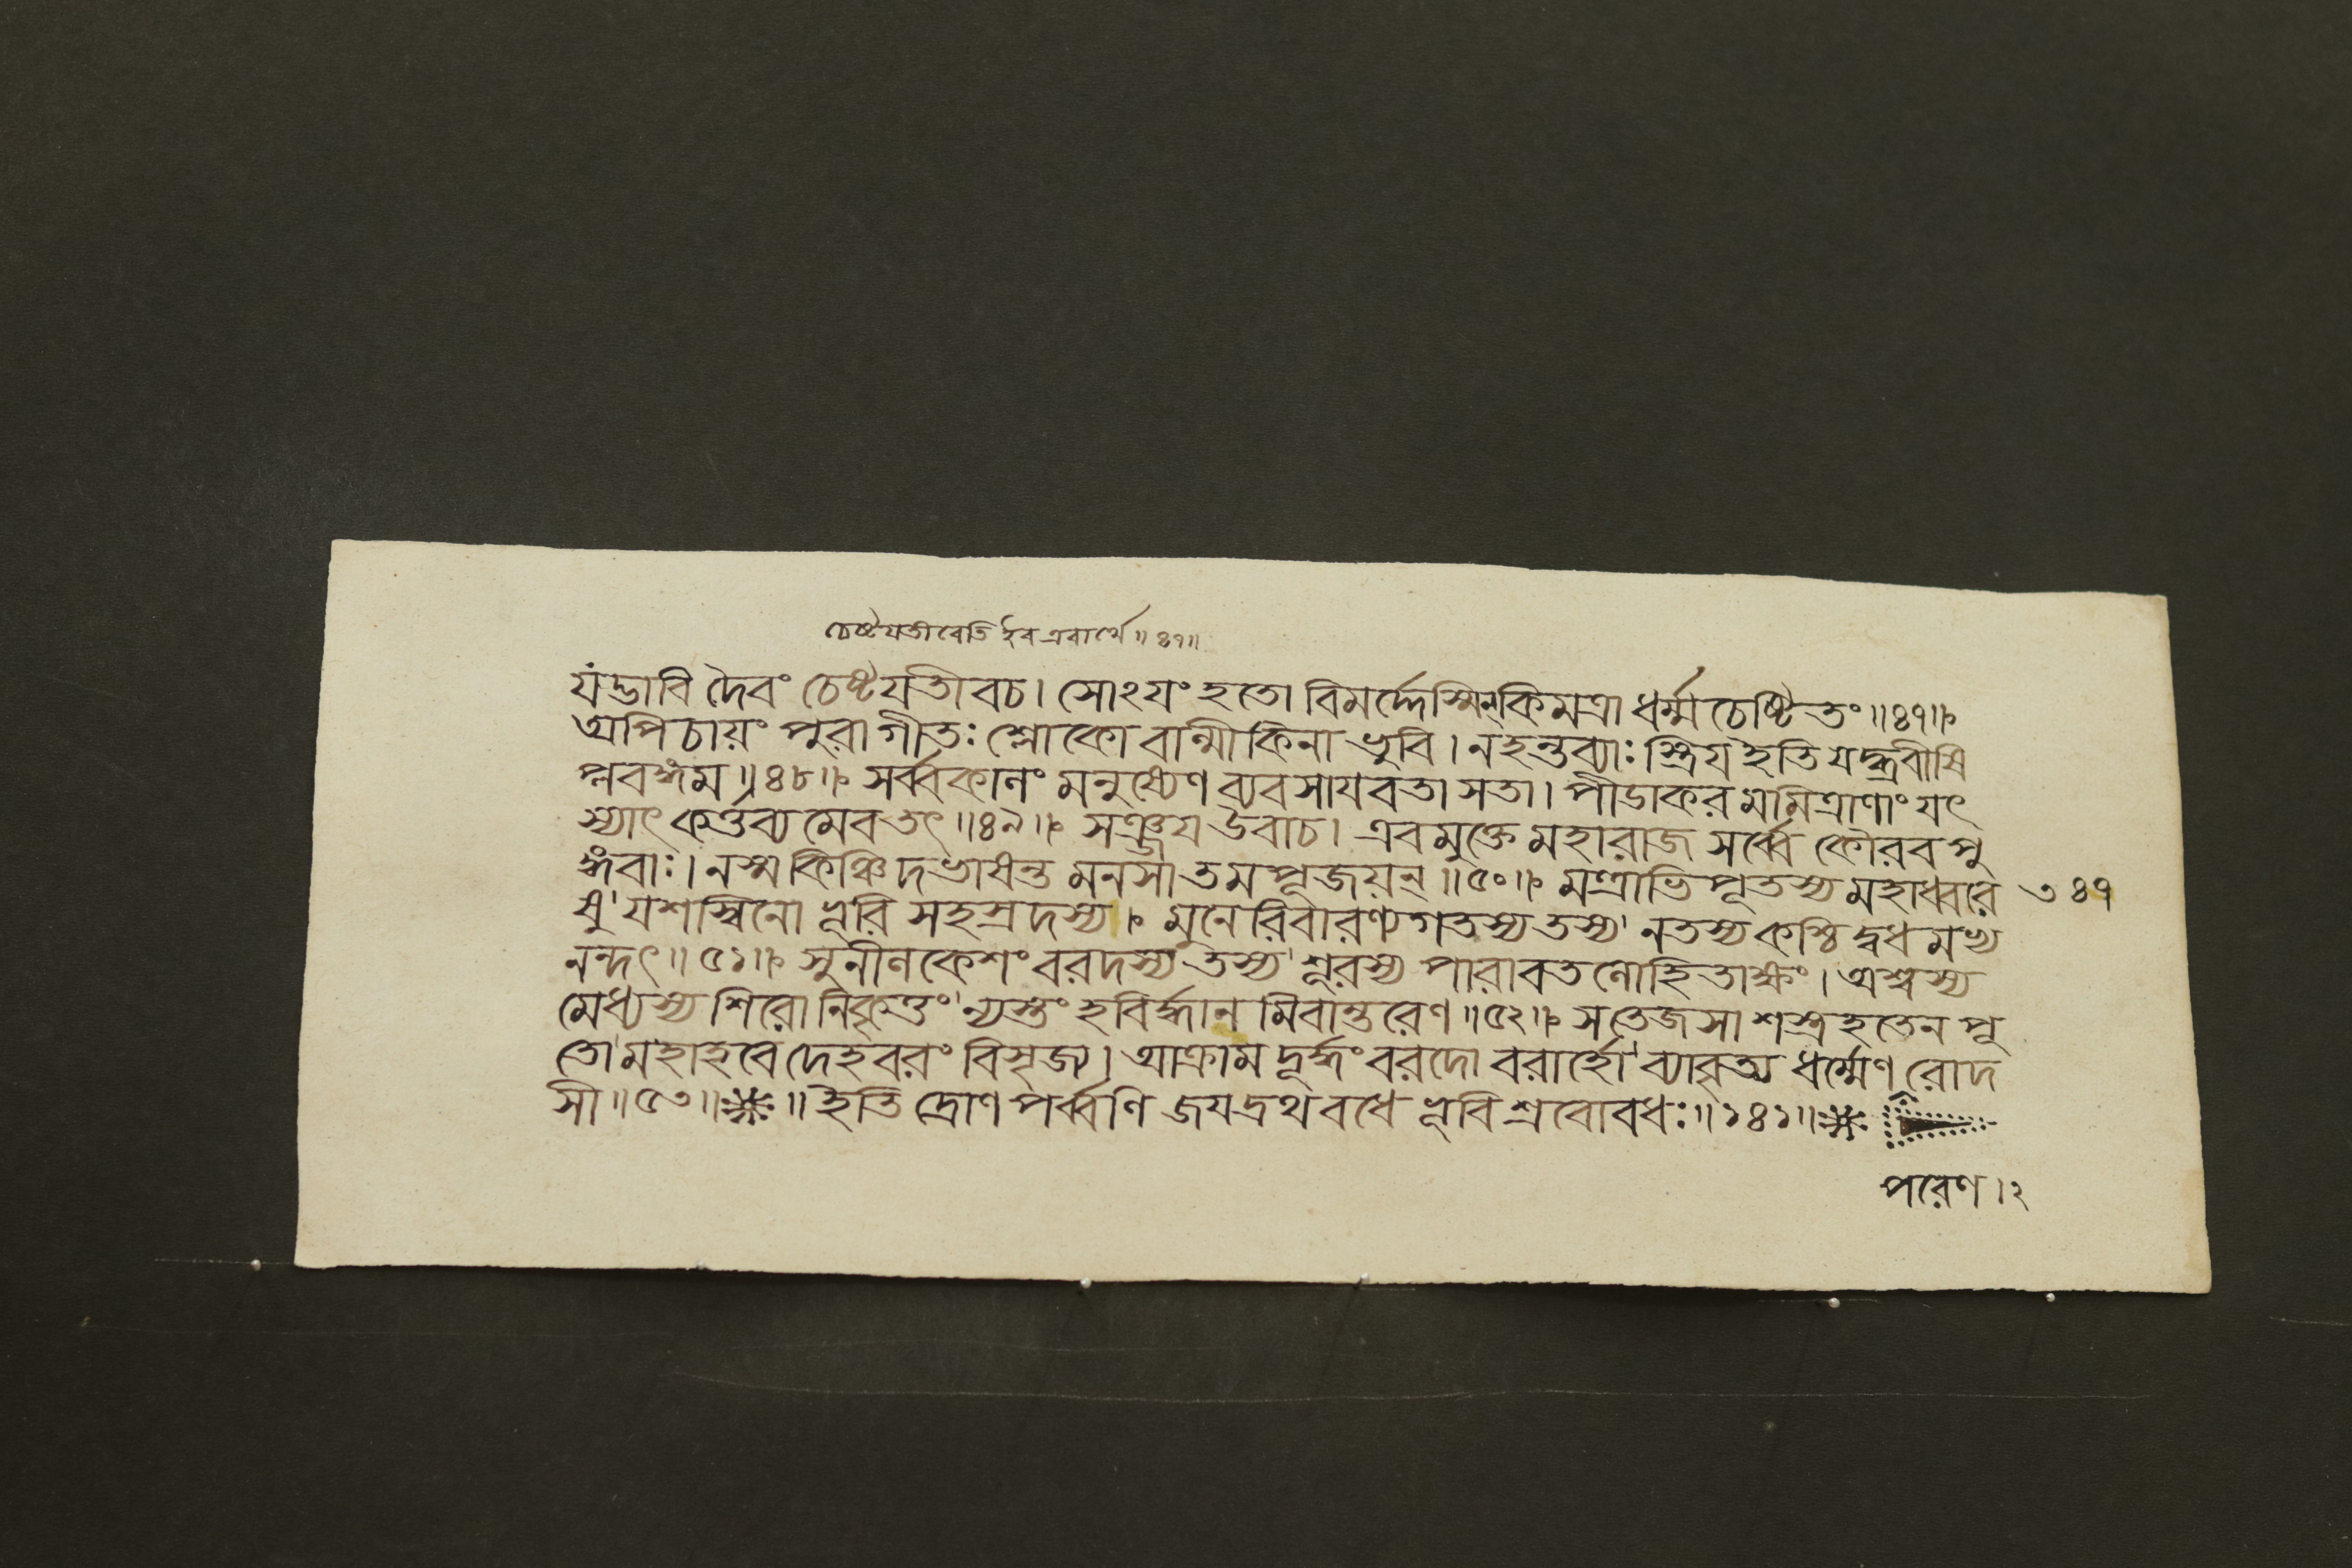 চেষ্টযতীবেতি ইব এবার্থে॥৪৭॥
যংম্ভাবি দৈবং চেষ্টযতীবচ। সোঽযং হতো বিমর্দ্দেস্মিন্ কিমত্রাধর্ম্মচেষ্টিতং॥৪৭॥
অপিচায়ং পুরাগীতঃ শ্লোকো বাল্মীকিনা ভুবি। নহন্তব্যাঃ স্ত্রিয ইতি যদ্ব্রবীষি
প্লবঙ্গম॥৪৮॥ সর্ব্বকালং মনুষ্যেণ ব্যবসাযবতা সতা। পীডাকরমমিত্রাণাং যৎ
স্যাৎ কর্ত্তব্যমেবতৎ॥৪৯॥ সঞ্জয উবাচ। এবমুক্তে মহারাজ সর্ব্বে কৌরবপু
ঙ্গবাঃ। নস্ম কিঞ্চিদভাষন্ত মনসা তমপূজয়ন্॥৫০॥ মন্ত্রাভিপূতস্য মহাধ্বরে ৩৪৭
ষু যশস্বিনো ভূরিসহস্রদস্য। মুনেরিবারণ্যগতস্য তস্য নতস্য কশ্চিদ্বধমভ্য
নন্দৎ॥৫১॥ সুনীলকেশং বরদস্য তস্য শূরস্য পারাবতলোহিতাক্ষং। অশ্বস্য
মেধ্যস্য শিরোনিকৃত্তং ন্যস্তং হবির্দ্ধানমিবান্তরেণ॥৫২॥ সতেজসা শস্ত্রহতেন পূ
তো মহাহবে দেহবরং বিসৃজ্য। আক্রামদূর্দ্ধং বরদো বরার্হো ব্যাবৃত্য ধর্ম্মেণ রোদ
সী॥৫৩॥ ॥ইতি দ্রোণপর্ব্বণি জযদ্রথবধে ভূরিশ্রবোবধঃ॥১৪১॥
পরেণ।২